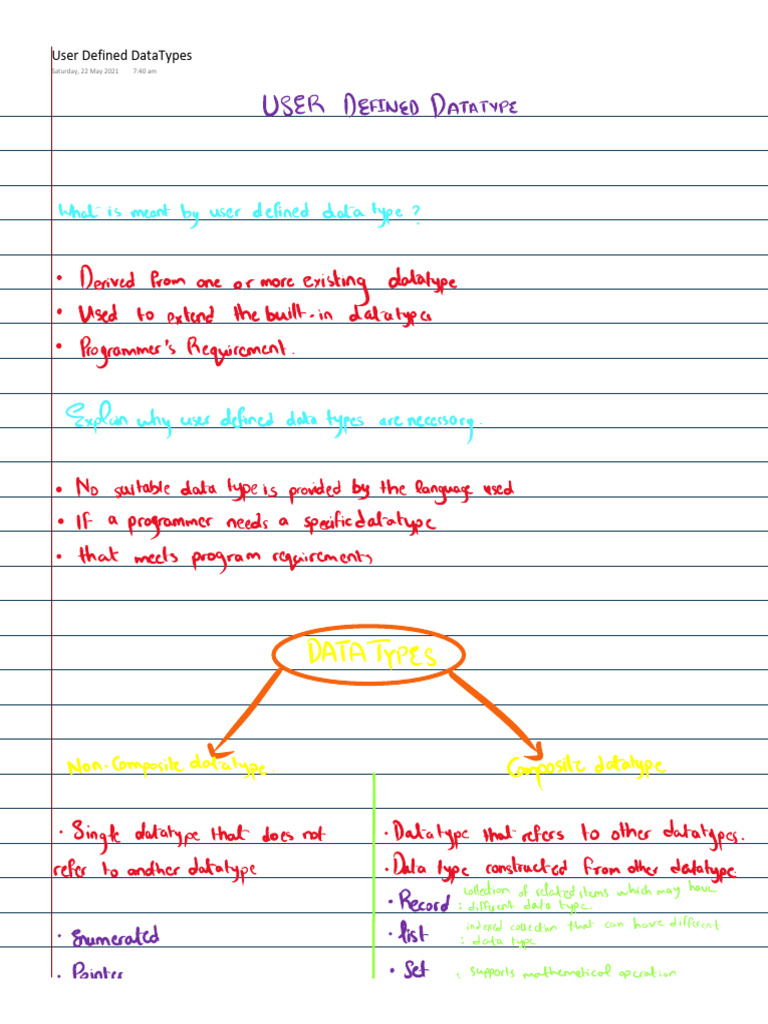 User Defined DataTypes
Saturday, 22 May 2021 7:40 am
USER DEFINED DATATYPE
What is meant by user defined data type?
• Derived from one or more existing datatype
• Used to extend the built-in datatypes
• Programmer's Requirement.
Explain why user defined data types are necessary.
• No suitable data type is provided by the language used
• If a programmer needs a specific datatype
• that meets program requirements
DATA TYPES
Non-Composite datatype
• Single datatype that does not
refer to another datatype
• Enumerated
• Pointer
Composite datatype
• Datatype that refers to other datatypes.
• Data type constructed from other datatype.
• Record : collection of related items which may have
different data type.
• list : indexed collection that can have different
data type
• Set : supports mathematical operation